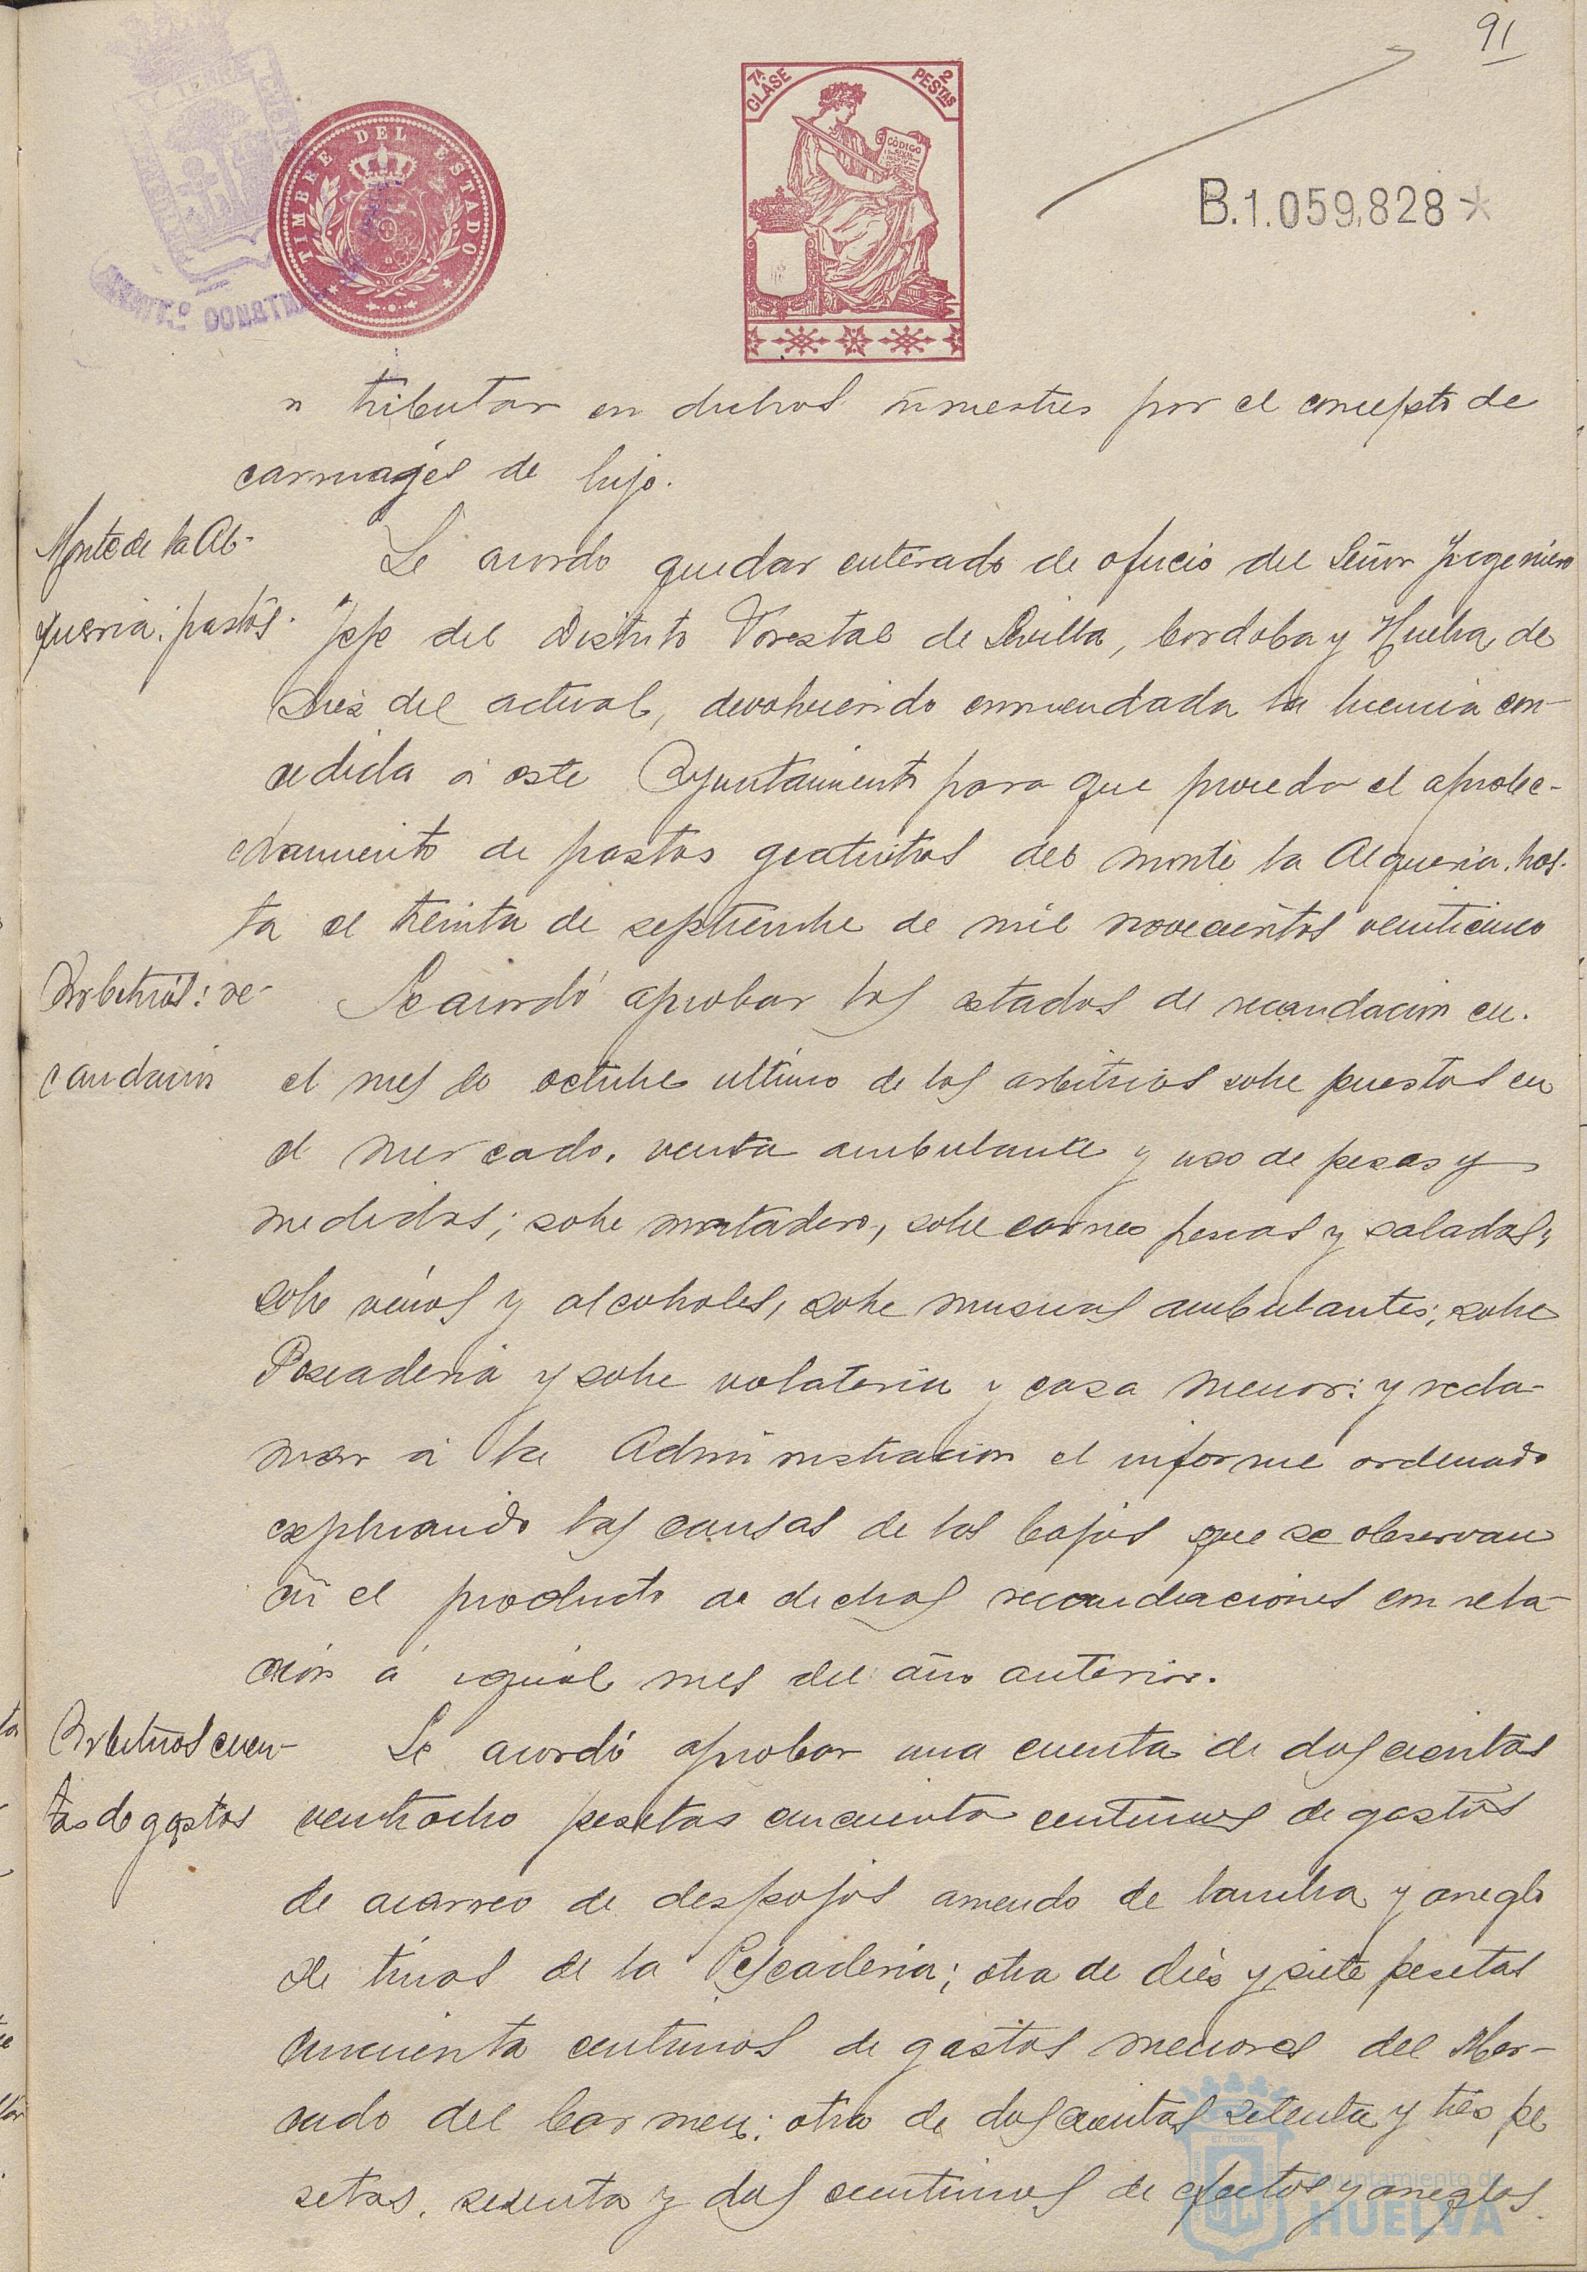 91
7ª CLASE
2 PESTAS
CÓDIGO
TIMBRE DEL ESTADO
B.1.059,828*
n tributar en dichos trimestres por el concepto de
carruages de lujo.
Monte de la Al-
queria: pastos.
Se acordo quedar enterado de oficio del Señor Ingeniero
Jefe del Distrito Forestal de Sevilla, Cordoba y Huelva, de
dies del actual, devolviendo enmendada la licencia con-
cedida á este Ayuntamiento para que proceda el aprobe-
chamiento de pastos gratuitos del monte la Alqueria, has-
ta el treinta de septiembre de mil novecientos veinticinco
Arbitrios: re-
caudacion
Se acordó aprobar los estados de recaudacion en
el mes de octubre ultimo de los arbitrios sobre puestos en
el mercado, venta ambulante y uso de pesas y
medidas; sobre matadero, sobre carnes frescas y saladas,
sobre vinos y alcoholes, sobre musicas ambulantes; sobre
Pescaderia y sobre volateria y caza menor: y recla-
mar á la Administracion el informe ordenado
explicando las causas de las bajas que se observan
en el producto de dichas recaudaciones con rela-
ción á igual mes del año anterior.
Arbitrios cuen-
tas de gastos
Se acordó aprobar una cuenta de doscientas
veintiocho pesetas cincuenta centimos de gastos
de acarreo de despojos arriendo de lancha y arreglo
de tinas de la Pescaderia; otra de diés y siete pesetas
cincuenta centimos de gastos menores del Mer-
cado del Carmen; otra de doscientas setenta y tres pe
setas, sesenta y dos centimos de efectos y arreglos
Ayuntamiento de
HUELVA